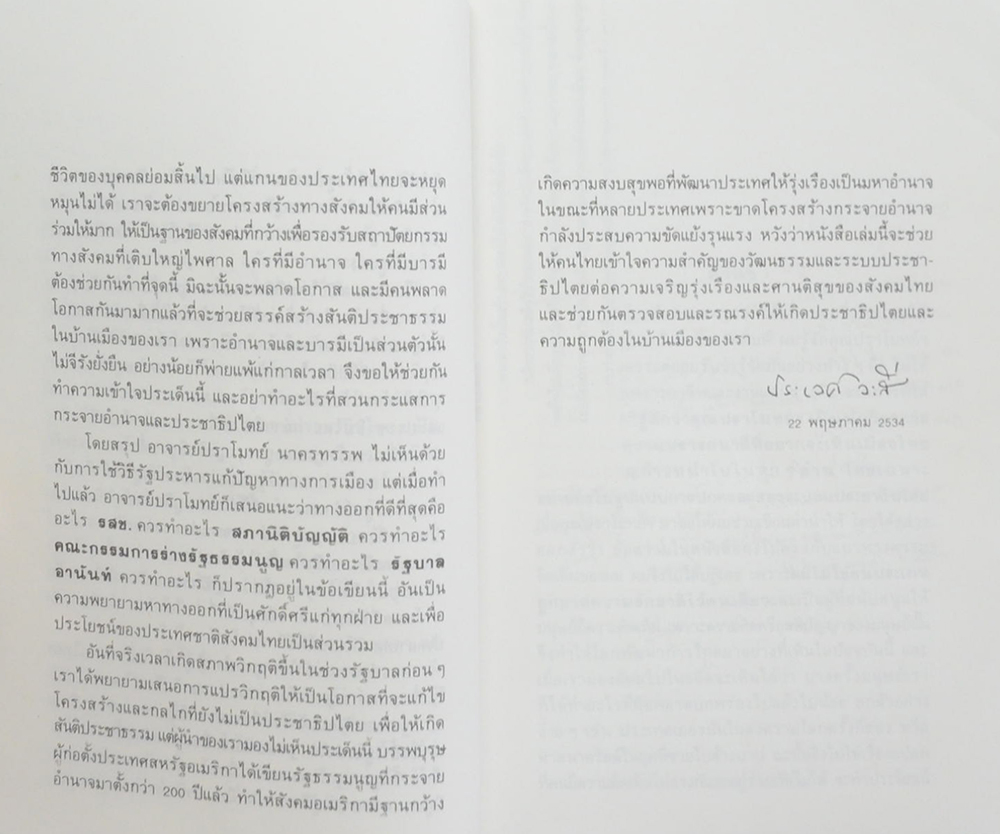 ชีวิตของบุคคลย่อมสิ้นไป แต่แกนของประเทศไทยจะหยุด
หมุนไม่ได้ เราจะต้องขยายโครงสร้างทางสังคมให้คนมีส่วน
ร่วมให้มาก ให้เป็นฐานของสังคมที่กว้างเพื่อรองรับสถาปัตยกรรม
ทางสังคมที่เติบใหญ่ไพศาล ใครที่มีอำนาจ ใครที่มีบารมี
ต้องช่วยกันทำที่จุดนี้ มิฉะนั้นจะพลาดโอกาส และมีคนพลาด
โอกาสกันมามากแล้วที่จะช่วยสรรค์สร้างสันติประชาธรรม
ในบ้านเมืองของเรา เพราะอำนาจและบารมีเป็นส่วนตัวนั้น
ไม่จีรังยั่งยืน อย่างน้อยก็พ่ายแพ้แก่กาลเวลา จึงขอให้ช่วยกัน
ทำความเข้าใจประเด็นนี้ และอย่าทำอะไรที่สวนกระแสการ
กระจายอำนาจและประชาธิปไตย
โดยสรุป อาจารย์ปราโมทย์ นาครทรรพ ไม่เห็นด้วย
กับการใช้วิธีรัฐประหารแก้ปัญหาทางการเมือง แต่เมื่อทำ
ไปแล้ว อาจารย์ปราโมทย์ก็เสนอแนะว่าทางออกที่ดีที่สุดคือ
อะไร รสช. ควรทำอะไร สภานิติบัญญัติ ควรทำอะไร
คณะกรรมการร่างรัฐธรรมนูญ ควรทำอะไร รัฐบาล
อานันท์ ควรทำอะไร ก็ปรากฏอยู่ในข้อเขียนนี้ อันเป็น
ความพยายามหาทางออกที่เป็นศักดิ์ศรีแก่ทุกฝ่าย และเพื่อ
ประโยชน์ของประเทศชาติสังคมไทยเป็นส่วนรวม
อันที่จริงเวลาเกิดสภาพวิกฤติขึ้นในช่วงรัฐบาลก่อน ๆ
เราได้พยายามเสนอการแปรวิกฤติให้เป็นโอกาสที่จะแก้ไข
โครงสร้างและกลไกที่ยังไม่เป็นประชาธิปไตย เพื่อให้เกิด
สันติประชาธรรม แต่ผู้นำของเรามองไม่เห็นประเด็นนี้ บรรพบุรุษ
ผู้ก่อตั้งประเทศสหรัฐอเมริกาได้เขียนรัฐธรรมนูญที่กระจาย
อำนาจมาตั้งกว่า 200 ปีแล้ว ทำให้สังคมอเมริกามีฐานกว้าง
เกิดความสงบสุขพอที่พัฒนาประเทศให้รุ่งเรืองเป็นมหาอำนาจ
ในขณะที่หลายประเทศเพราะขาดโครงสร้างกระจายอำนาจ
กำลังประสบความขัดแย้งรุนแรง หวังว่าหนังสือเล่มนี้จะช่วย
ให้คนไทยเข้าใจความสำคัญของวัฒนธรรมและระบบประชา-
ธิปไตยต่อความเจริญรุ่งเรืองและศานติสุขของสังคมไทย
และช่วยกันตรวจสอบและรณรงค์ให้เกิดประชาธิปไตยและ
ความถูกต้องในบ้านเมืองของเรา
ประเวศ วะสี
22 พฤษภาคม 2534